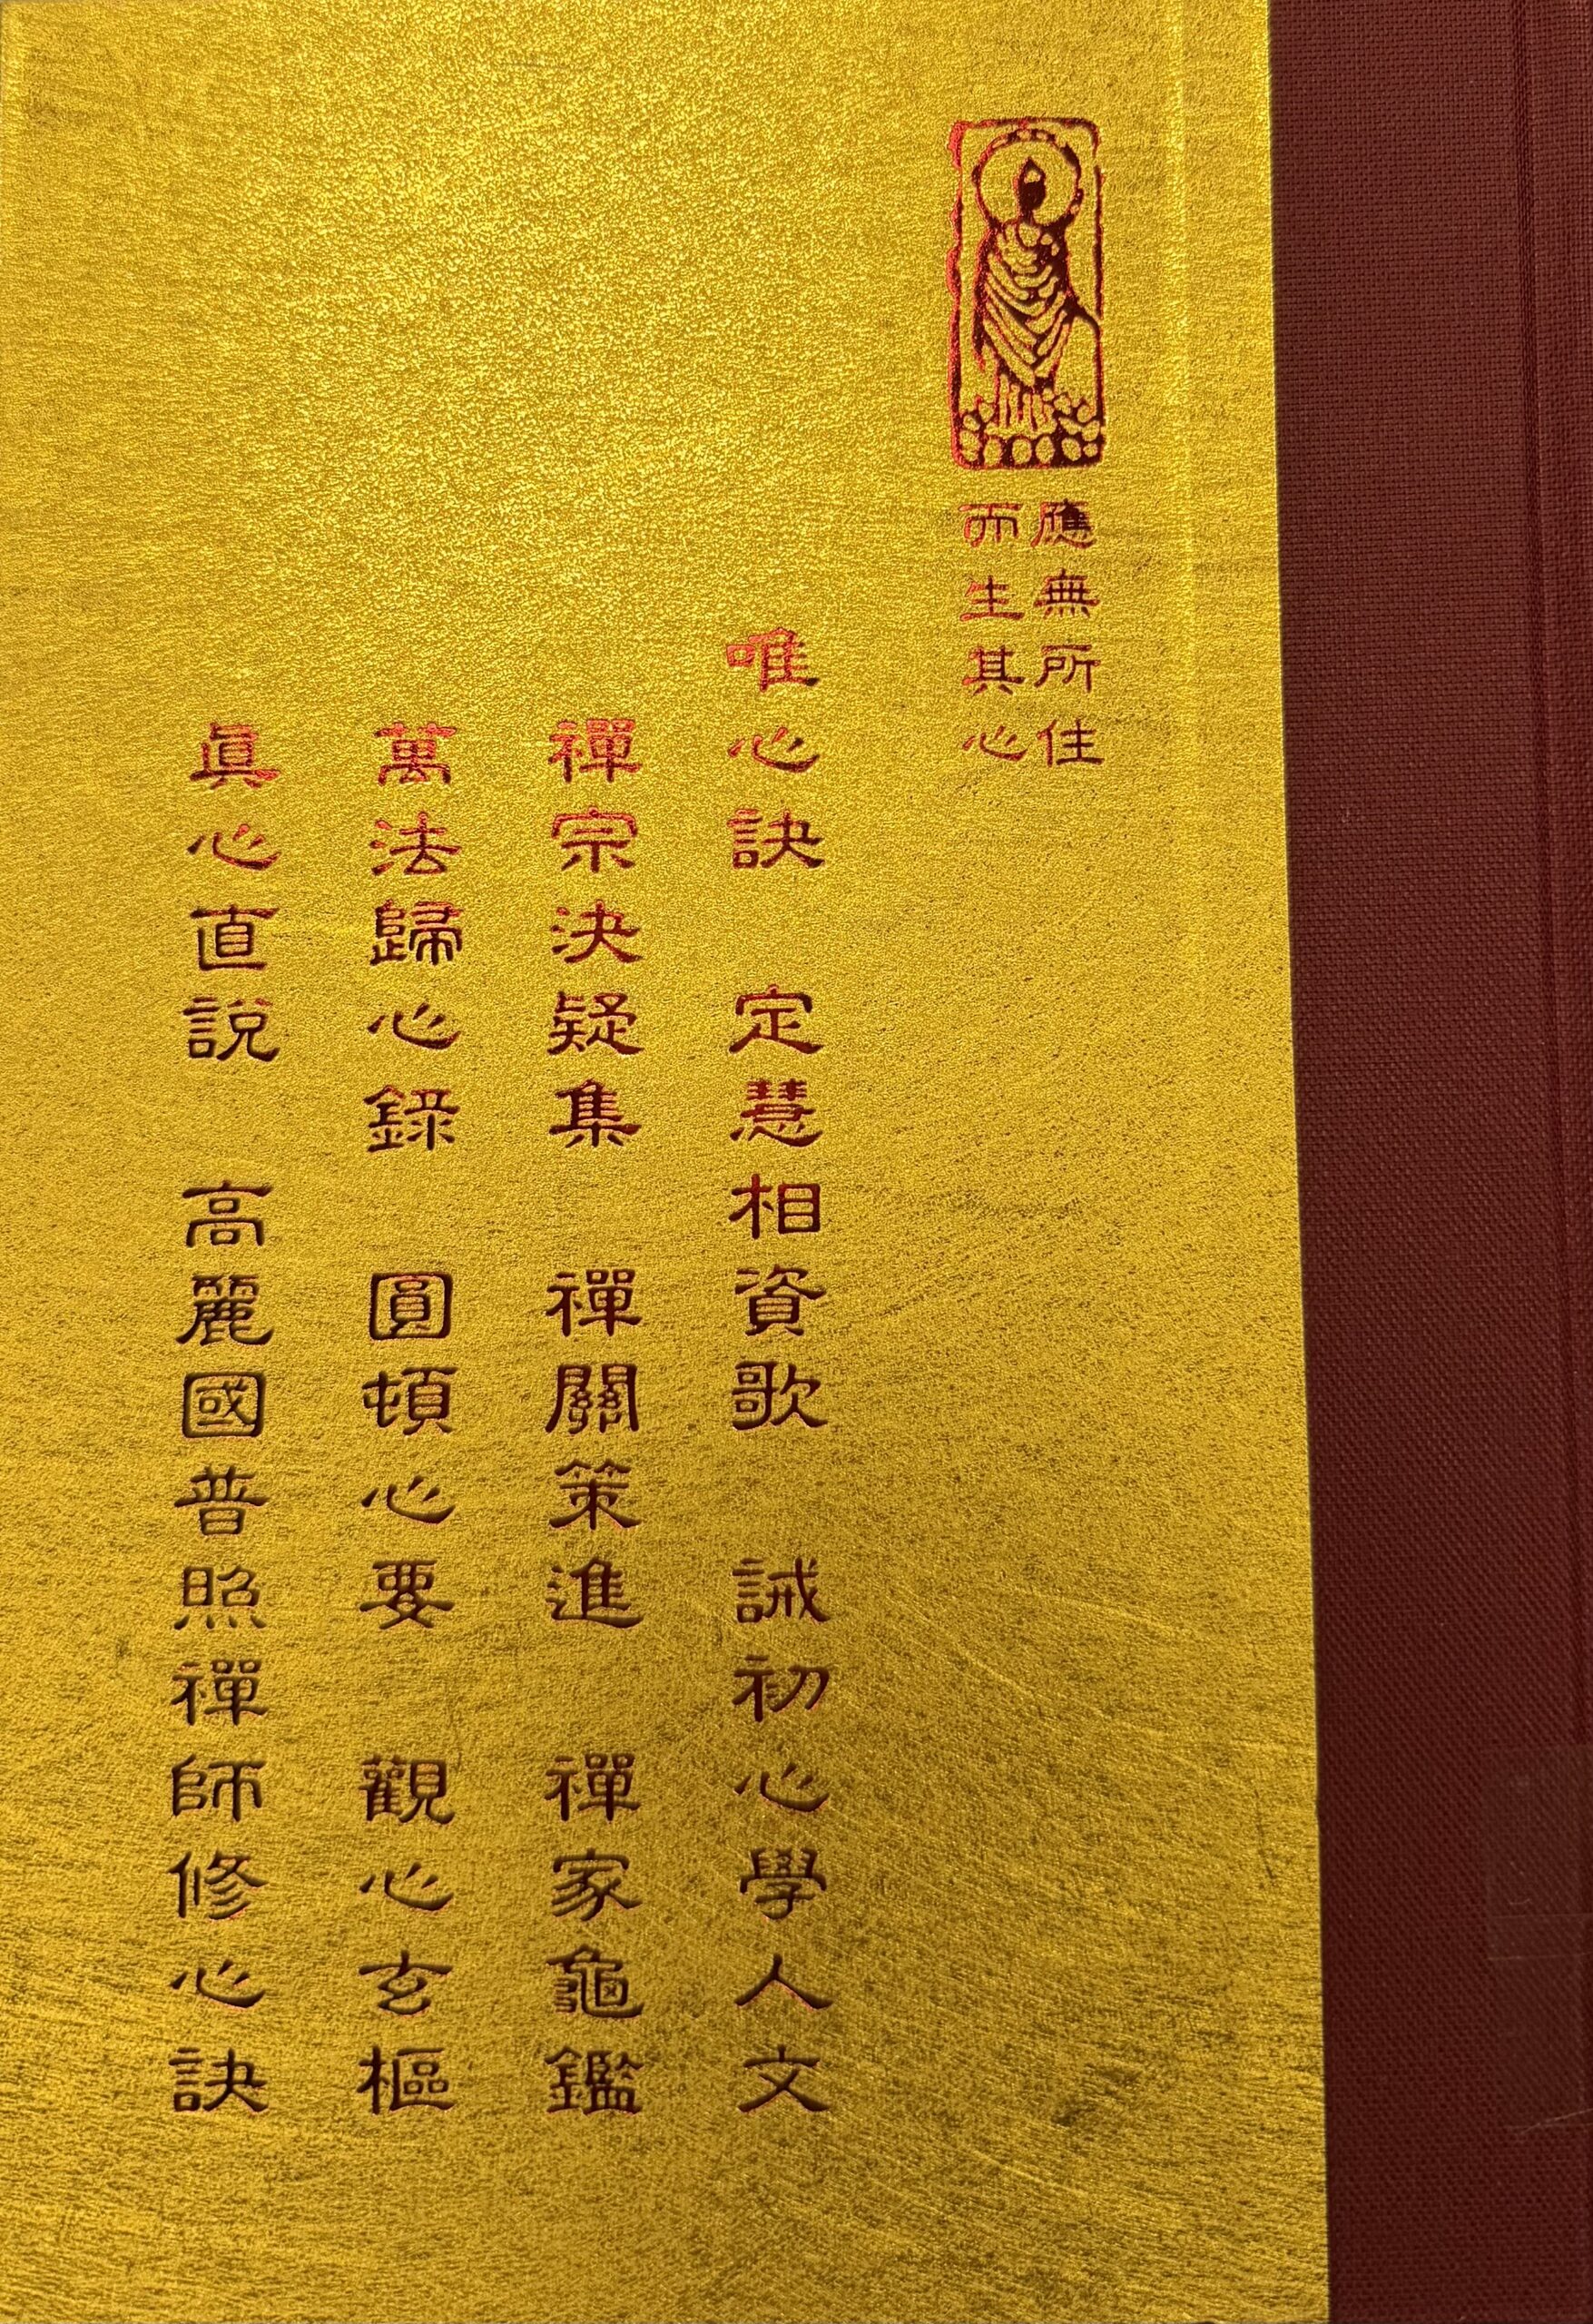 應無所住
而生其心
唯心訣　定慧相資歌　誡初心學人文
禪宗決疑集　禪關策進　禪家龜鑑
萬法歸心錄　圓頓心要　觀心玄樞
眞心直說　高麗國普照禪師修心訣